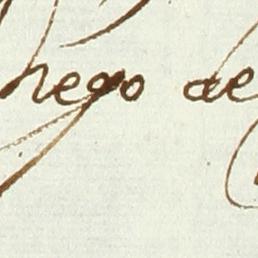 hego de